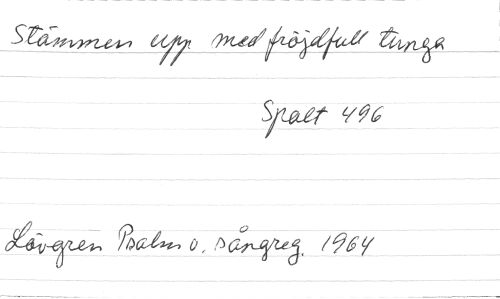 Stämmen upp med fröjdfull tunga
Spalt 496
Lövgren Psalm o. sångreg. 1964